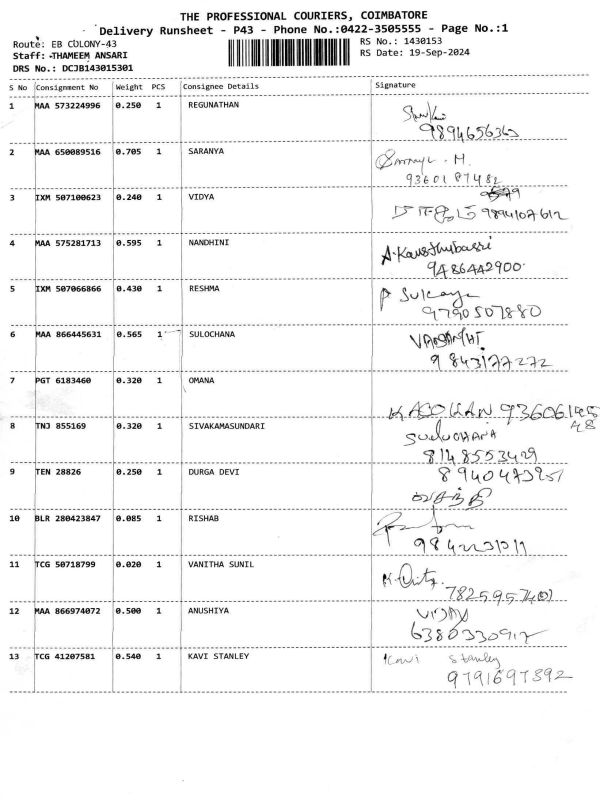 THE PROFESSIONAL COURIERS, COIMBATORE
Delivery Runsheet - P43 - Phone No.:0422-3505555 - Page No.:1
Route: EB COLONY-43
RS No.: 1430153
Staff: THAMEEM ANSARI
RS Date: 19-Sep-2024
DRS No.: DCJB143015301
S No Consignment No Weight PCS Consignee Details Signature
1 MAA 573224996 0.250 1 REGUNATHAN
2 MAA 650089516 0.705 1 SARANYA
9360187482
3 IXM 507100623 0.240 1 VIDYA
9894107612
4 MAA 575281713 0.595 1 NANDHINI
9486442900
5 IXM 507066866 0.430 1 RESHMA
9790507880
6 MAA 866445631 0.565 1 SULOCHANA
VASANTHI
9843177272
7 PGT 6183460 0.320 1 OMANA
8 TNJ 855169 0.320 1 SIVAKAMASUNDARI
SULUCHANA
8148553429
9 TEN 28826 0.250 1 DURGA DEVI
10 BLR 280423847 0.085 1 RISHAB
11 TCG 50718799 0.020 1 VANITHA SUNIL
12 MAA 866974072 0.500 1 ANUSHIYA
VIJAY
6380330917
13 TCG 41207581 0.540 1 KAVI STANLEY
Kavi Stanley
9791697392